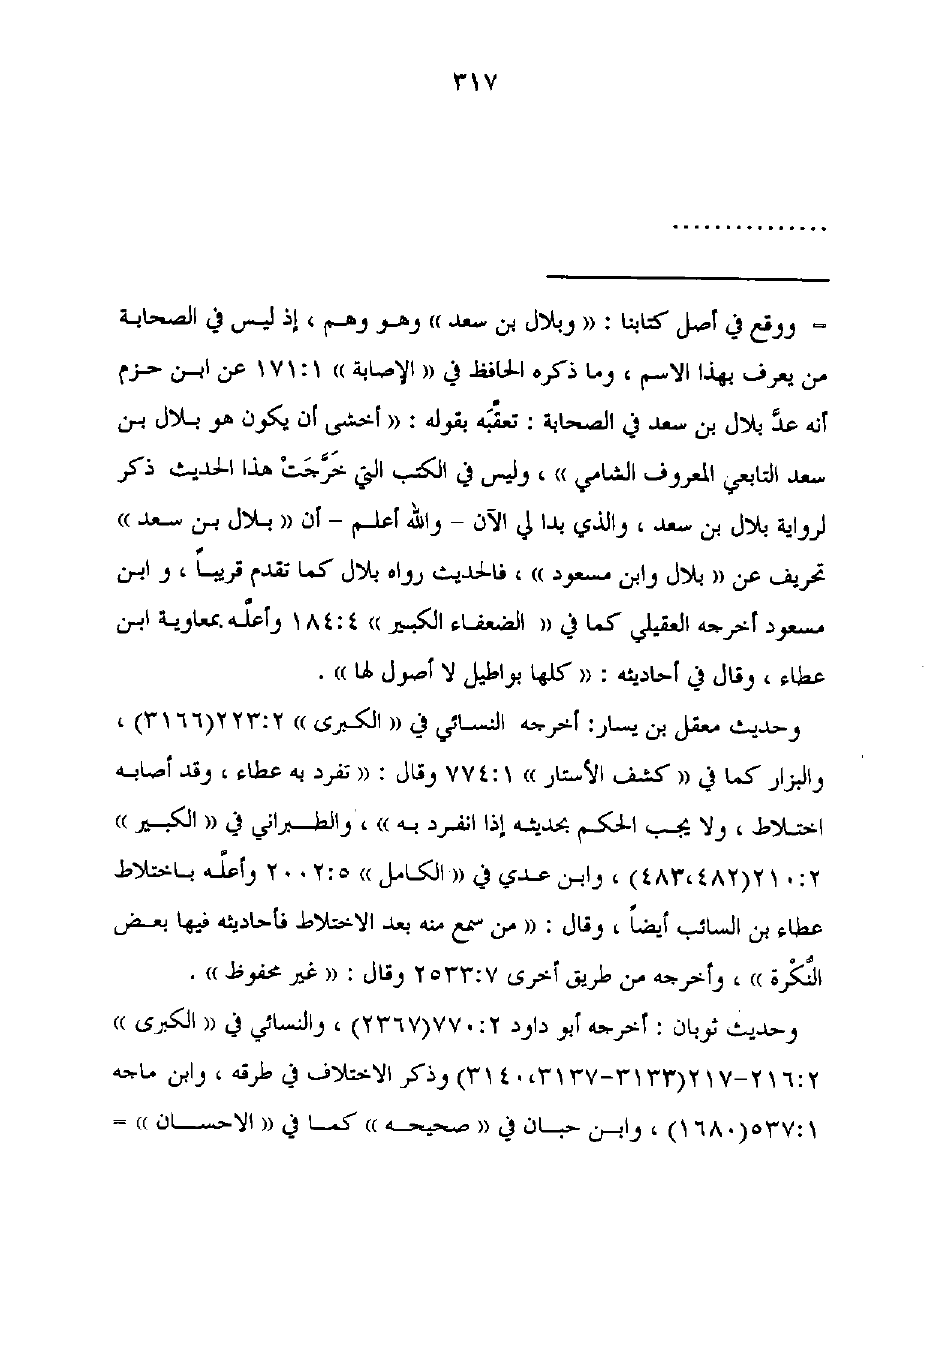 ٣١٧
...............
= ووقع في أصل كتابنا : « وبلال بن سعد » وهو وهم ، إذ ليس في الصحابة
من يعرف بهذا الاسم ، وما ذكره الحافظ في « الإصابة » ١٧١:١ عن ابن حزم
أنه عدَّ بلال بن سعد في الصحابة : تعقّبَه بقوله : « أخشى أن يكون هو بلال بن
سعد التابعي المعروف الشامي » ، وليس في الكتب التي خَرَّجَتْ هذا الحديث ذكر
لرواية بلال بن سعد ، والذي بدا لي الآن - والله أعلم - أن « بلال بن سعد »
تحريف عن « بلال وابن مسعود » ، فالحديث رواه بلال كما تقدم قريباً ، و ابن
مسعود أخرجه العقيلي كما في « الضعفاء الكبير » ١٨٤:٤ وأعلَّه بمعاوية ابن
عطاء ، وقال في أحاديثه : « كلها بواطيل لا أصول لها » .
وحديث معقل بن يسار: أخرجه النسائي في « الكبرى » ٢٢٣:٢(٣١٦٦) ،
والبزار كما في « كشف الأستار » ٧٧٤:١ وقال : « تفرد به عطاء ، وقد أصابه
اختلاط ، ولا يجب الحكم بحديثه إذا انفرد به » ، والطبراني في « الكبير »
٢١٠:٢(٤٨٣،٤٨٢) ، وابن عدي في « الكامل » ٢٠٠٢:٥ وأعلَّه باختلاط
عطاء بن السائب أيضاً ، وقال : « من سمع منه بعد الاختلاط فأحاديثه فيها بعض
النُّكْرة » ، وأخرجه من طريق أخرى ٢٥٣٣:٧ وقال : « غير محفوظ » .
وحديث ثوبان : أخرجه أبو داود ٧٧٠:٢(٢٣٦٧) ، والنسائي في « الكبرى »
٢١٦:٢-٢١٧(٣١٣٣-٣١٣٧،٣١٤٠) وذكر الاختلاف في طرقه ، وابن ماجه
٥٣٧:١(١٦٨٠) ، وابن حبان في « صحيحه » كما في « الاحسان » =